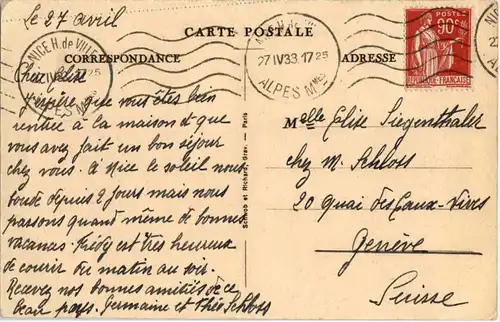 Le 27 avril
CARTE POSTALE
CORRESPONDANCE
ADRESSE
NICE H. de VILLE
25
ALPES Mmes
NICE H. de VILLE
27 IV 33 17 25
ALPES Mmes
POSTES
90c
REPUBLIQUE FRANCAISE
Chère Elise
J'espère que vous êtes bien
rentrée à la maison et que
vous avez fait un bon séjour
chez vous. à Nice le soleil nous
boude depuis 2 jours mais nous
passons quand même de bonnes
vacances. Frédy est très heureux
de courir du matin au soir.
Recevez nos bonnes amitiés de ce
beau pays. Germaine et Théo Schloss
Schnob et Richard, Grav. - Paris
Melle Elise Siegenthaler
chez M. Schloss
20 Quai des Eaux-Vives
Genève
Suisse